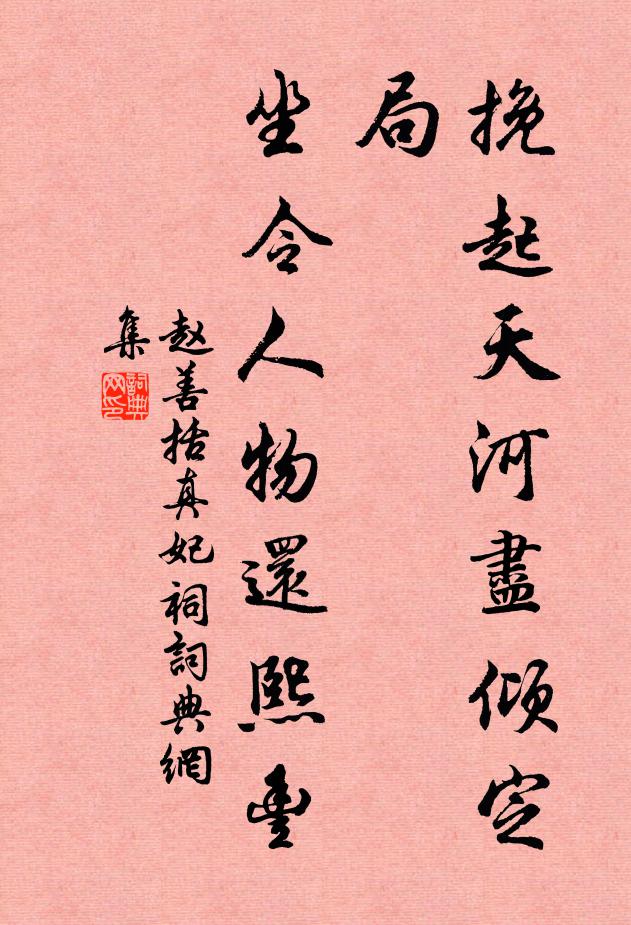 挽起天河盡傾定
局
坐令人物還熙豊
赵善括真妃祠詞典網
集
詞典
网印